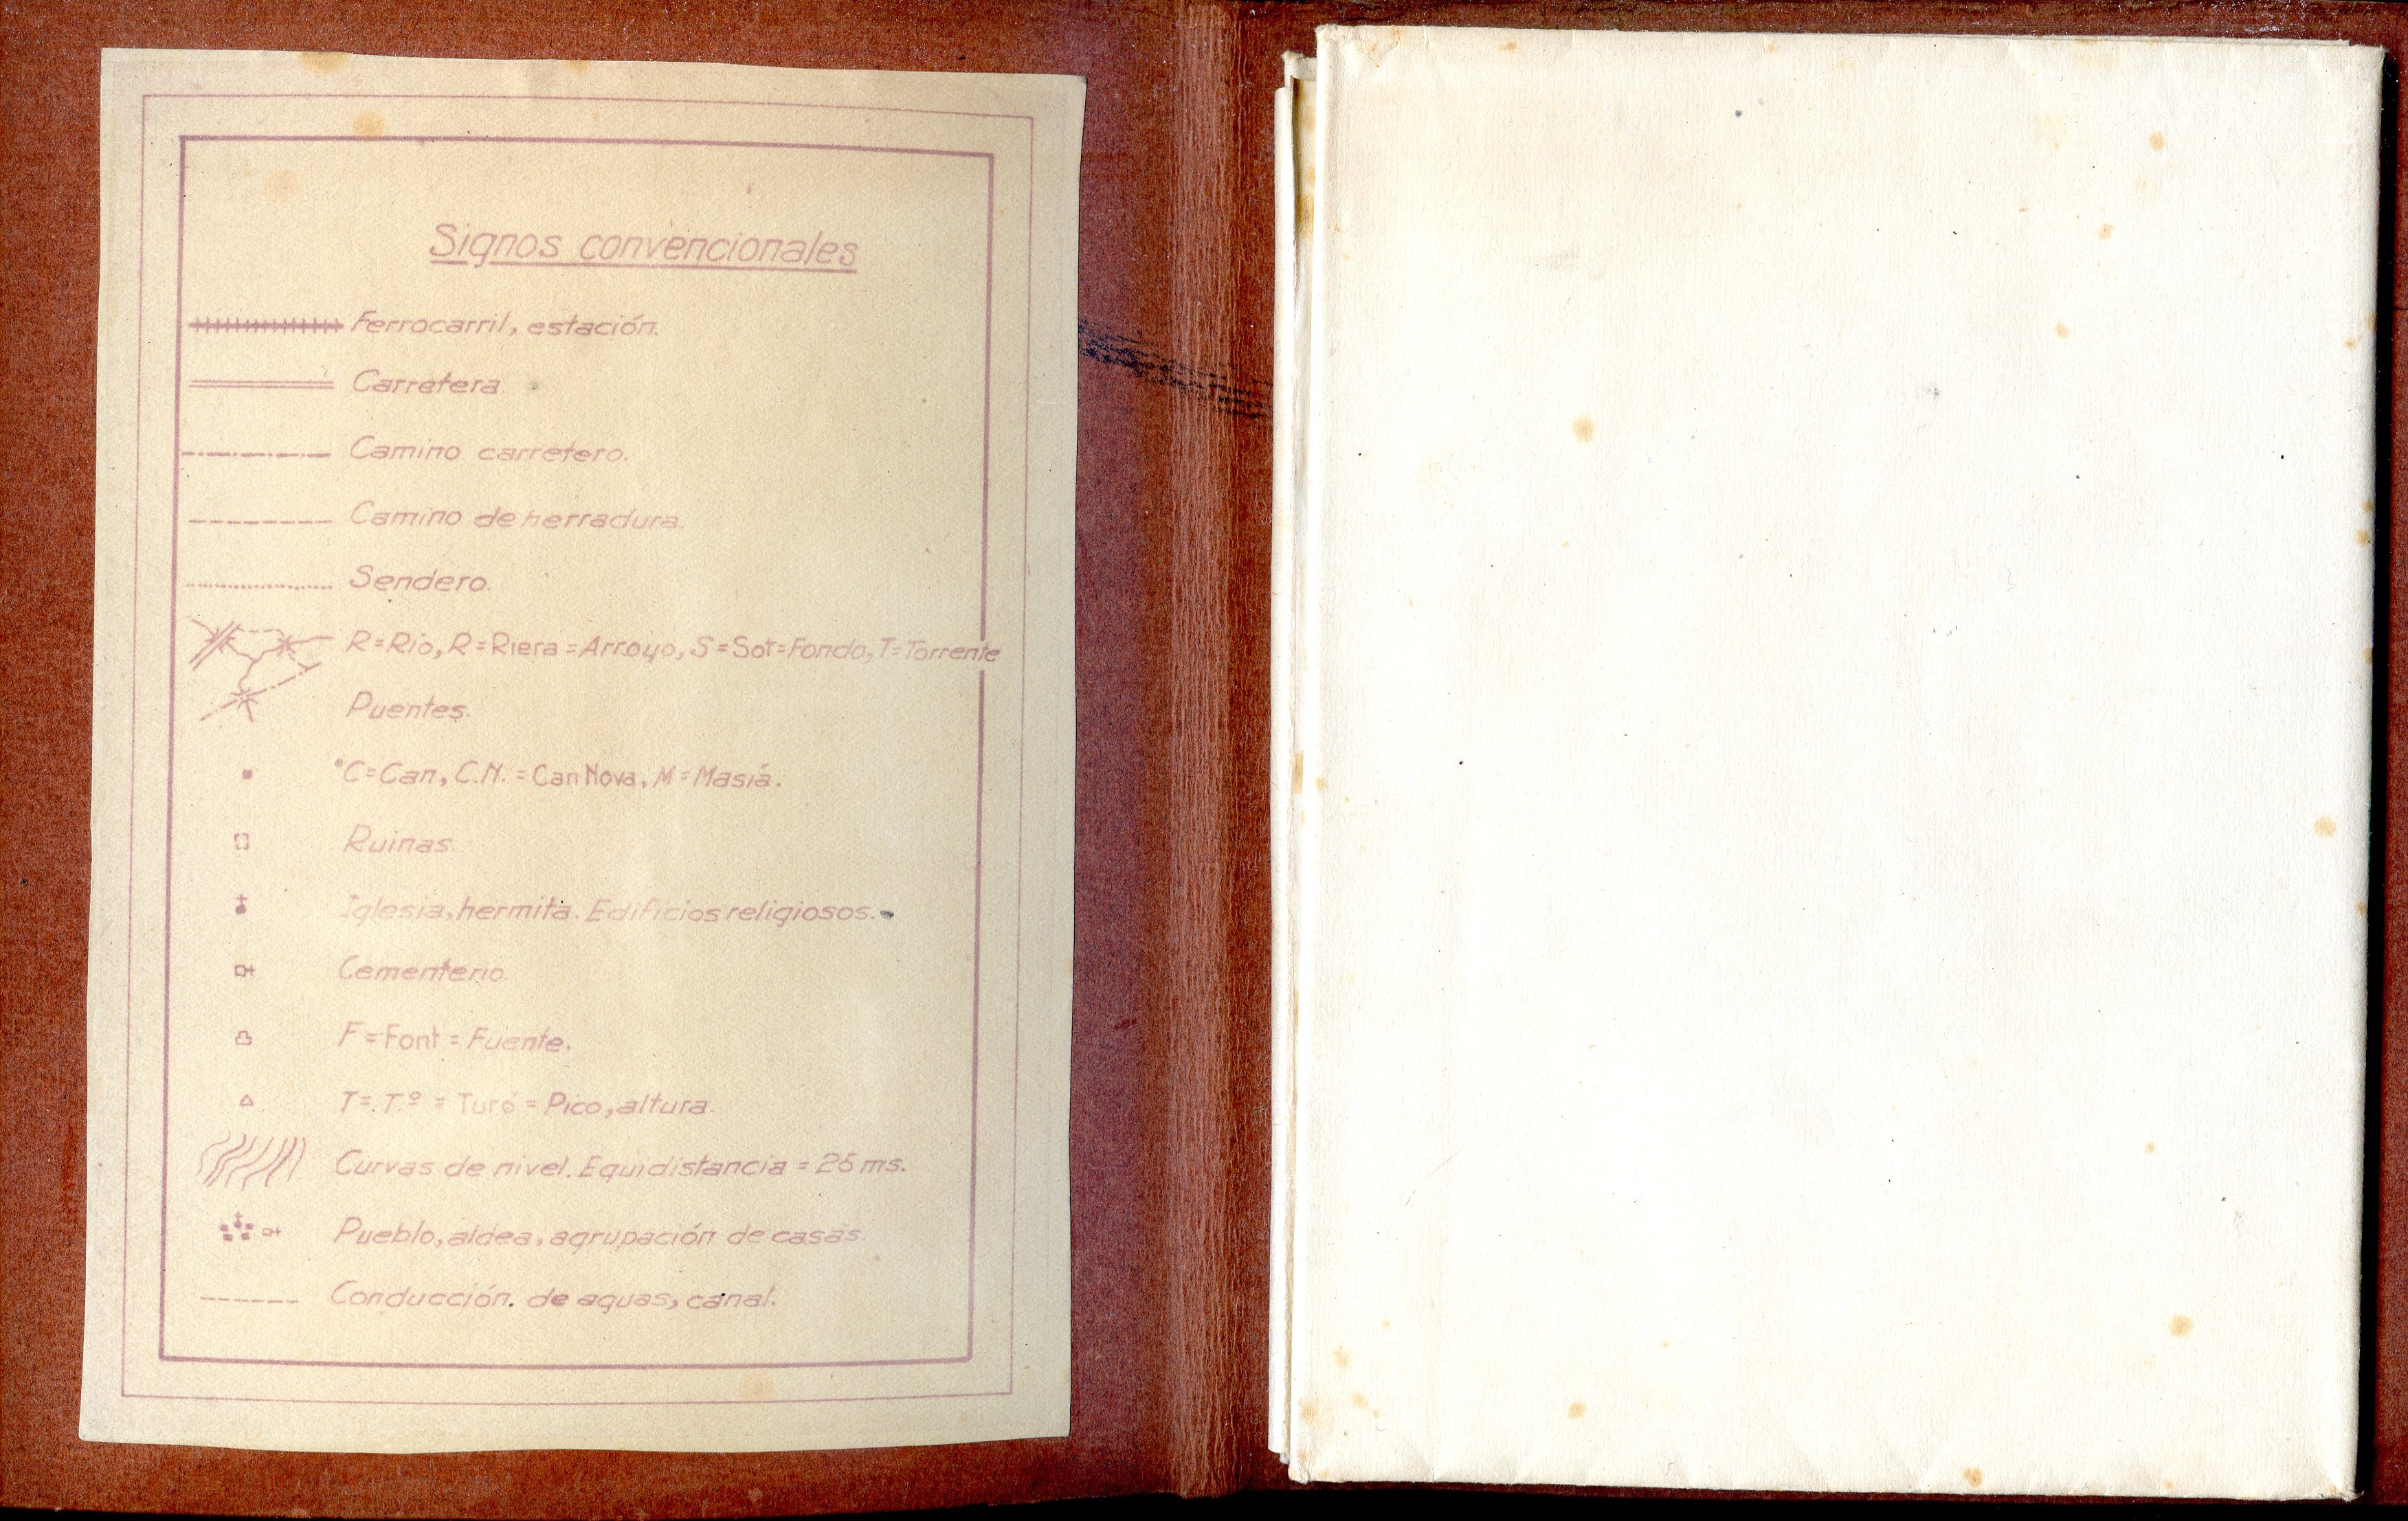 Signos convencionales
Ferrocarril, estación.
Carretera
Camino carretero.
Camino de herradura.
Sendero.
R=Río, R=Riera=Arroyo, S=Sot=Fondo, T=Torrente
Puentes.
C=Can, C.N.=Can Nova, M=Masiá.
Ruinas.
Iglesia, hermita. Edificios religiosos.
Cementerio.
F=Font=Fuente.
T=T.º=Turó=Pico, altura.
Curvas de nivel. Equidistancia=25 ms.
Pueblo, aldea, agrupación de casas.
Conducción de aguas, canal.